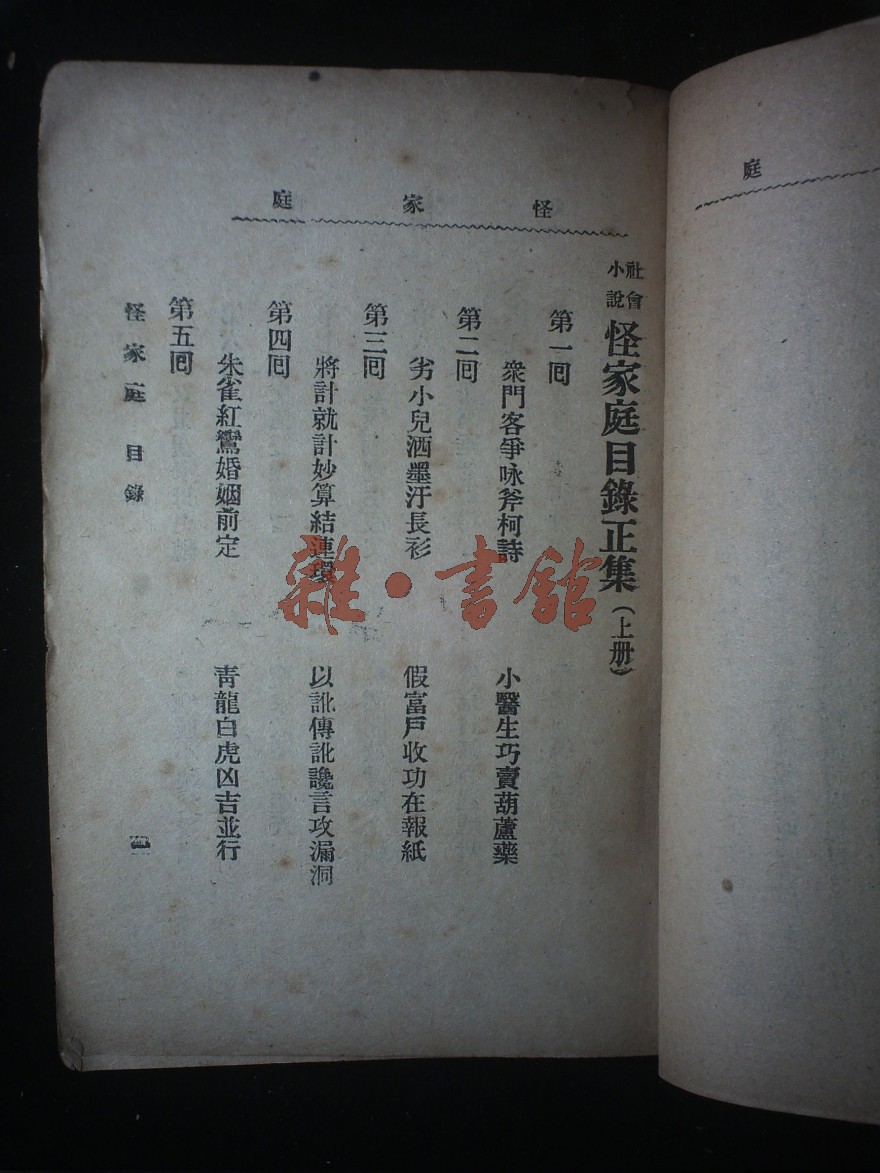 庭
怪家庭
社會小說 怪家庭目錄正集（上册）
第一囘
衆門客爭咏斧柯詩 小醫生巧賣葫蘆藥
第二囘
劣小兒洒墨汙長衫 假富戶收功在報紙
第三囘
將計就計妙算結連環 以訛傳訛讒言攻漏洞
第四囘
朱雀紅鸞婚姻前定 靑龍白虎凶吉並行
第五囘
怪家庭 目錄
雜·書館